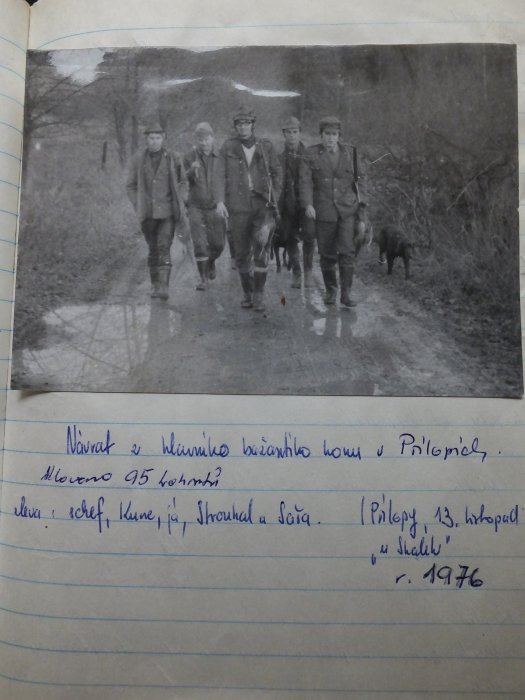 Návrat z hlavního bažantího honu v Přílepích.
Uloveno 95 kohoutů
zleva: schef, Kune, já, Strouhal a Saša. (Přílepy, 13. listopad
„u Skalek"
r. 1976